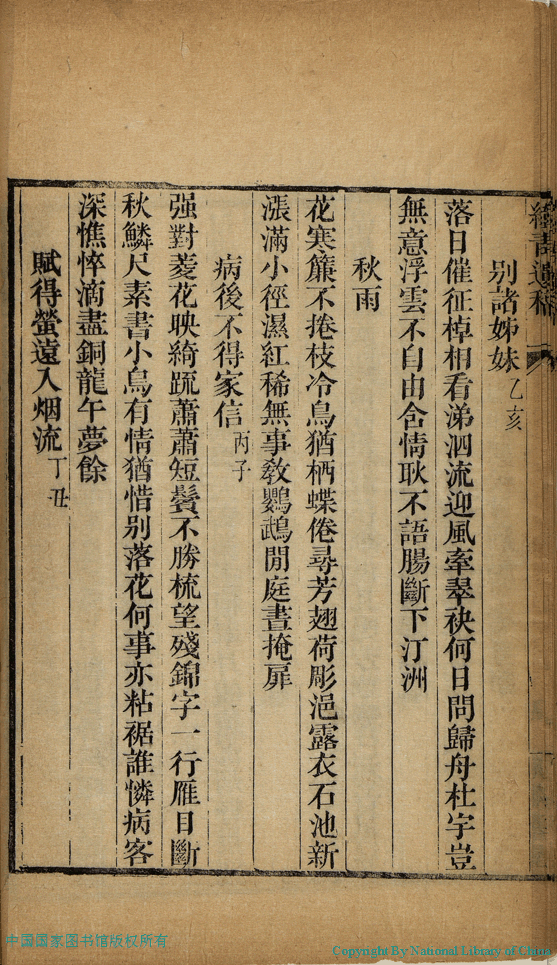 繪聲遺稿
別諸姊妹乙亥
落日催征棹相看涕泗流迎風牽翠袂何日問歸舟杜宇豈
無意浮雲不自由含情耿不語腸斷下汀洲
秋雨
花寒簾不捲枝冷鳥猶栖蝶倦尋芳翅荷彫浥露衣石池新
漲滿小徑濕紅稀無事教鸚鵡閒庭晝掩扉
病後不得家信丙子
强對菱花映綺疏蕭蕭短鬢不勝梳望殘錦字一行雁目斷
秋鱗尺素書小鳥有情猶惜别落花何事亦粘裾誰憐病客
深憔悴滴盡銅龍午夢餘
賦得螢遠入烟流丁丑
中国国家图书馆版权所有
Copyright By National Library of China